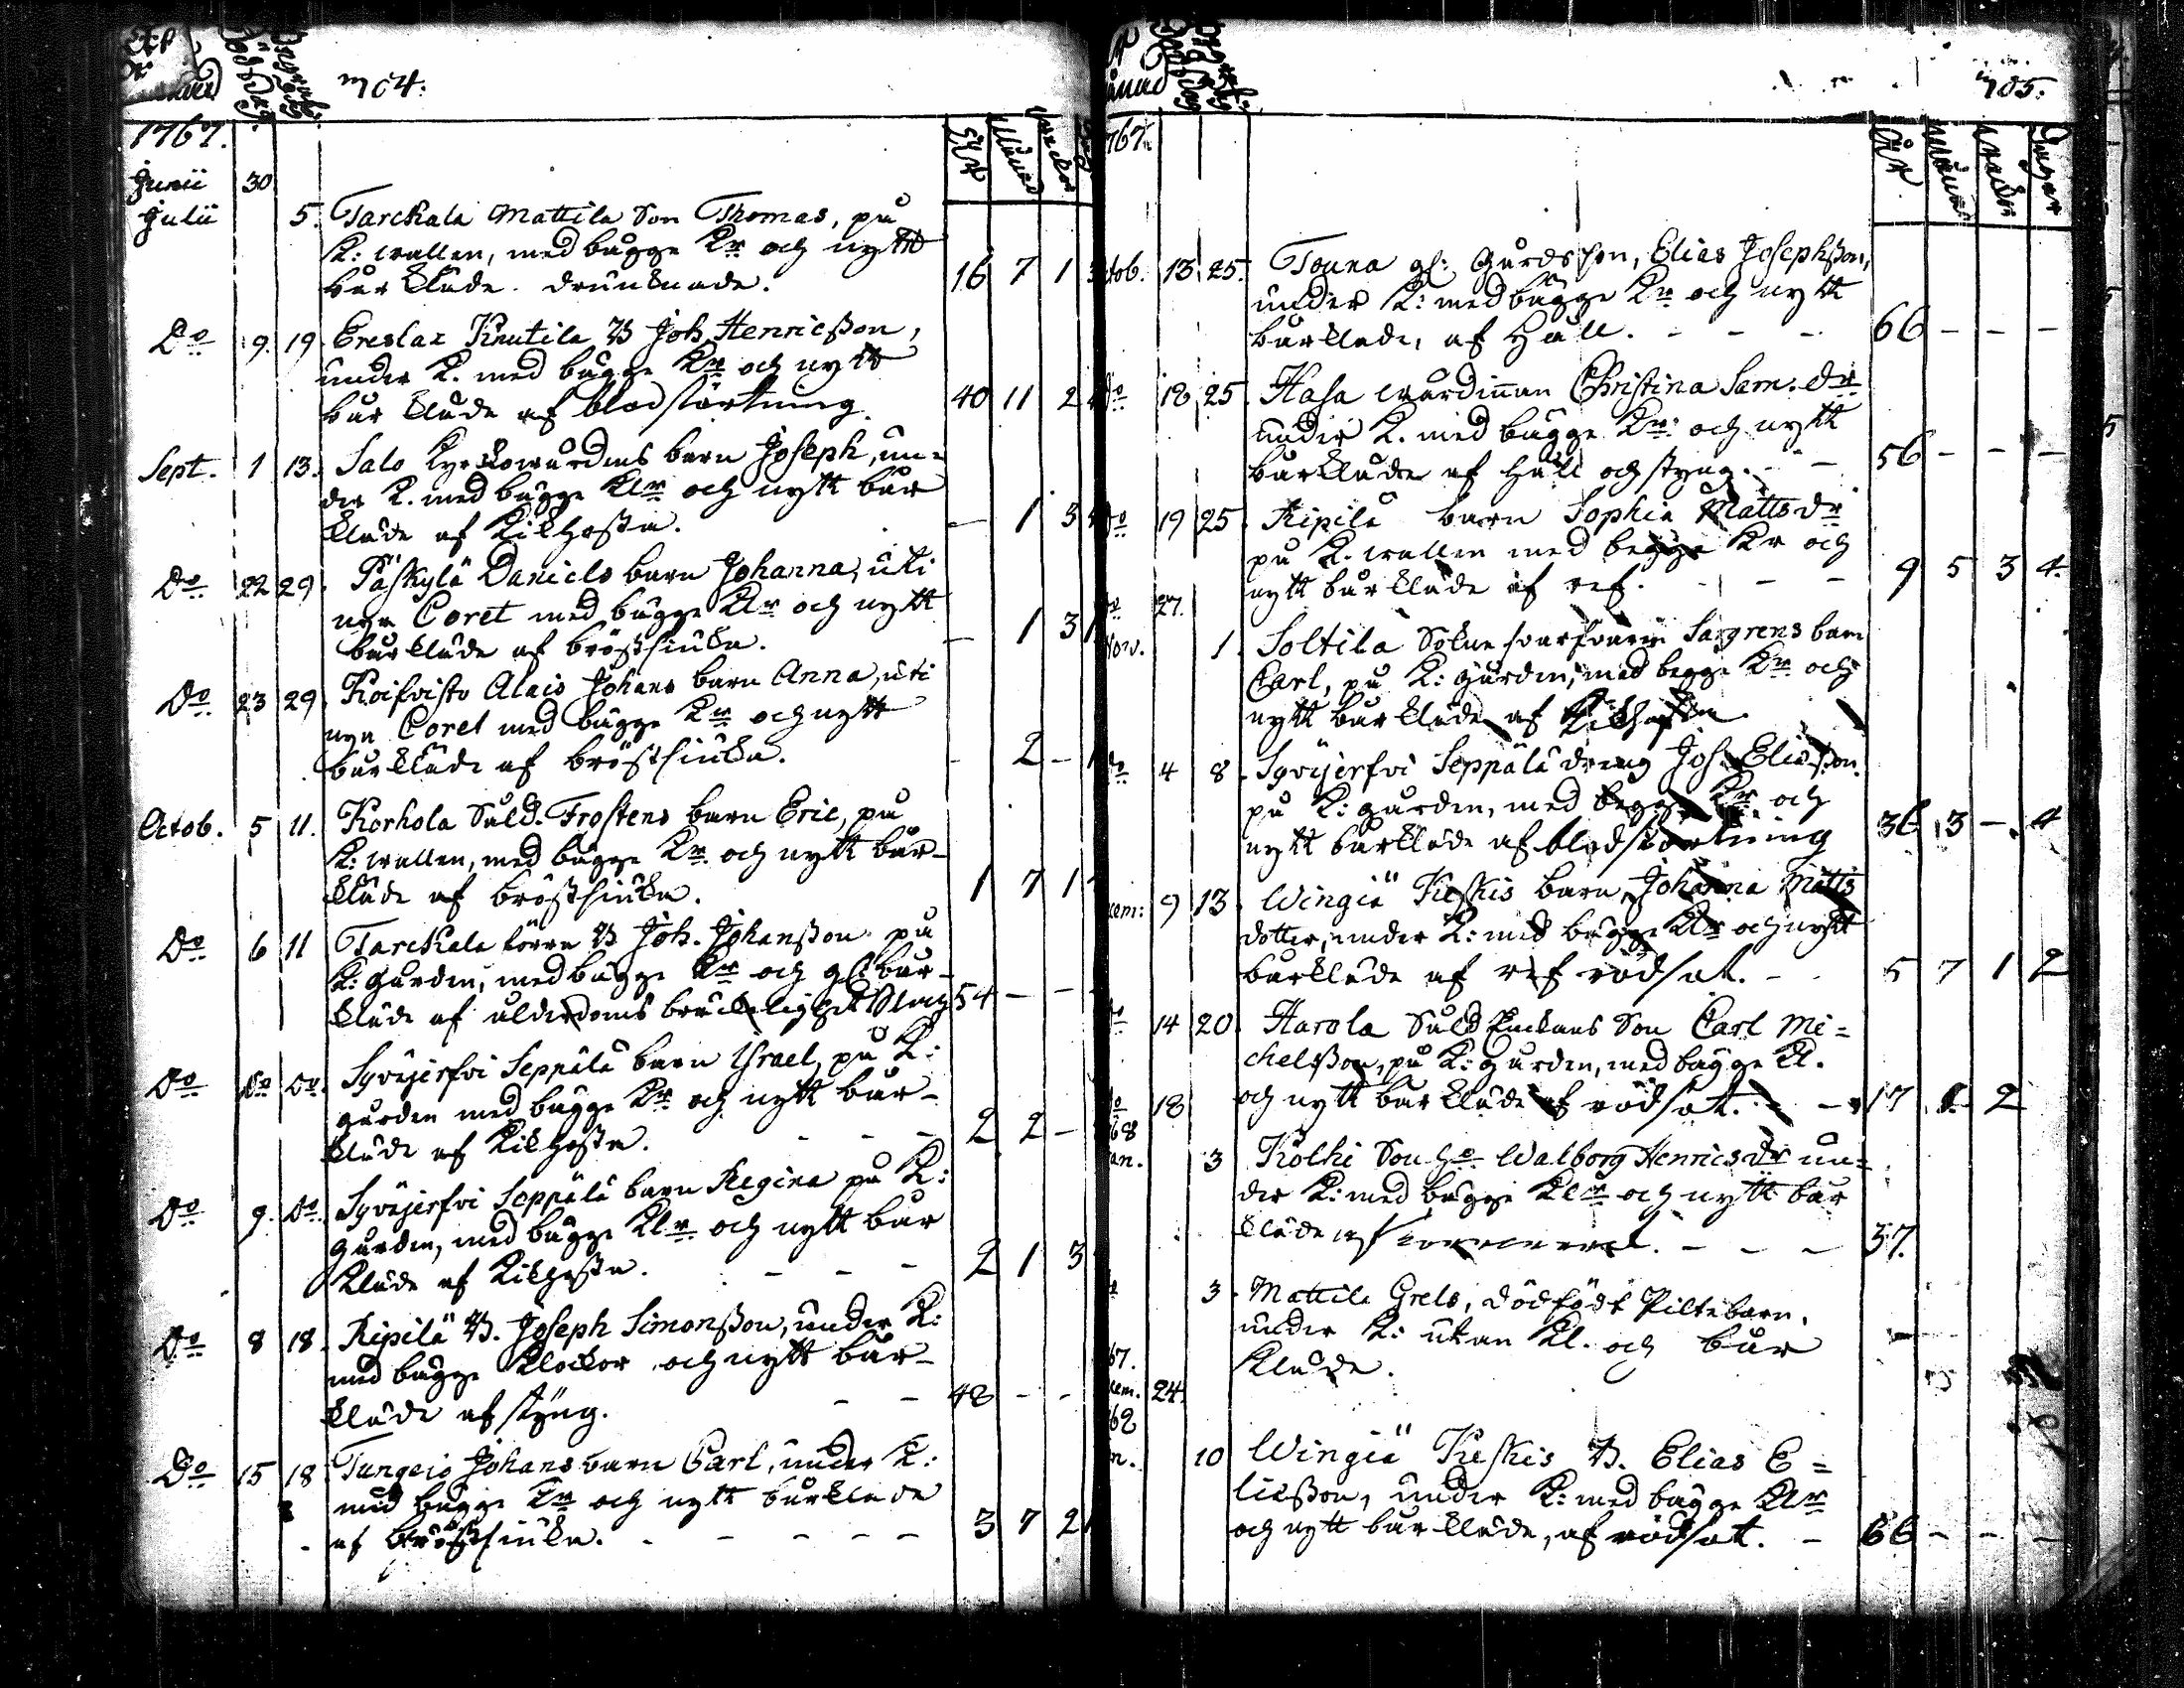 704.
1767.
Junii 30
Julii 5. Tarckala Mattila Son Thomas, på
K: wallen, med bägge Kr och nytt
bårkläde. drunknade. 16 7 1 3
Do 9. 19 Greslax Knutila B Joh. Henricsson,
under K. med bägge Kr och nytt
bårkläde af blodstörtning. 40 11 2
Sept. 1 13. Salo Kyrkowärdens barn Joseph, un=
der K. med bägge Klr och nytt bår
kläde af Kikhosta. - 1 3
Do 22 29. Påskylä Daniels barn Johanna, uti
nya Coret med bägge Klr och nytt
bårkläde af bröstsiuka. - 1 3 1
Do 23 29. Koifvisto Alais Johans barn Anna, uti
nya Coret med bägge Kr och nytt
bårkläde af bröstsiuka. - 2 -
Octob. 5 11. Korhola Sald. Frostens barn Eric, på
K: wallen, med bägge Kr och nytt bår-
kläde af bröstsiuka. 1 7 1
Do 6 11 Tarckala förra B Joh. Johansson på
K: gården, med bägge Kr och glt bår-
kläde af ålderdoms bräcklighet Slag 54 - -
Do Do Do. Syväjerfvi Seppälä barn Israel, på K:
gården med bägge Kr och nytt bår-
kläde af Kikhosta. - - - 2 2 -
Do 9. Do. Syväjerfvi Seppälä barn Regina på K:
gården, med bägge Klr och nytt bår
kläde af Kikhosta. - - - 2 1 3
Do 8 18. Ripilä B. Joseph Simonsson, under K:
med bägge Klockor och nytt bår-
kläde af styng. - - 48 - -
Do 15 18 Tungais Johans barn Carl, under K:
med bägge Kr och nytt bårkläde
af bröstsiuka. - - - - - 3 7 2
705.
767.
År Månad Wecka Dagar
tob. 13 25. Touna gl: Gårdsson, Elias Josephsson,
under K: med bägge Kr och nytt
bårkläde, af Håll. - - - 66 - - -
Do 18 25 Hasa wärdinnan Christina Sam. dr
under K. med bägge Kr och nytt
bårkläde af håll och styng. - - 56 - - -
Do 19 25. Ripilä barn Sophia Matts dr
på K. wallen med begge Kr och
nytt bårkläde af ref. - - - 9 5 3 4.
Do 27.
Nov. 1. Soltila Sokne Sagrens barn
Carl, på K: gården, med begge Kr och
nytt bårkläde af Kikhosta
Do 4 8. Syväjerfvi Seppälä dräng Joh. Eliasson.
på K: gården, med begge Kr och
nytt bårkläde af blodstörtning 36 3 - 4
cem: 9 13. Wingiä Keskis barn Johanna Matts
dotter, under K: med bägge Klr och nytt
bårkläde af ref rödsot. - 5 7 1 2
Do 14 20. Harola Sald Son Carl Mi=
chelsson, på K: gården, med bägge Kl.
och nytt bårkläde af rödsot. - - 17 2
Do 18
68
an. 3 Kölhi Son Walborg Henrics dr un=
der K: med bägge Klr och nytt bår
kläde af - - - 37.
3. Mattila Grels, dödfödt Piltebarn,
under K: utan Kl. och bår
kläde.
67.
cem. 24.
68
n. 10 Wingiä Keskis B. Elias E=
liesson, under K: med bägge Klr
och nytt bårkläde, af rödsot. - 66 - - -